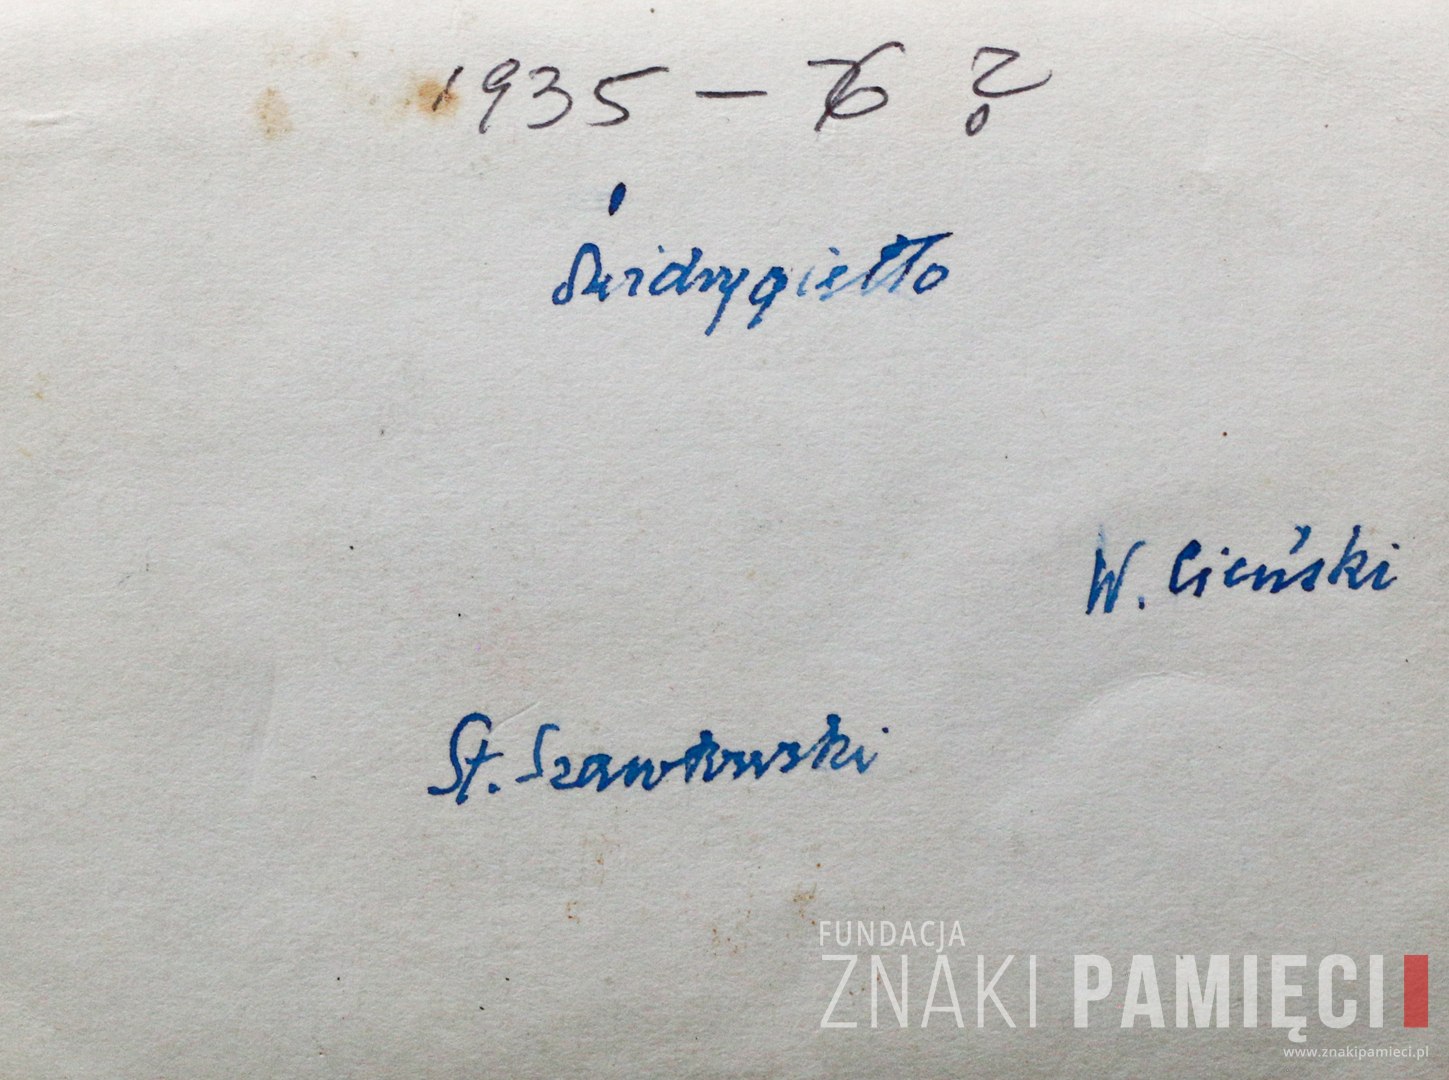 1935 – 36 ?
Świdrygiełło
W. Cieński
St. Szawłowski
FUNDACJA
ZNAKI PAMIĘCI
www.znakipamieci.pl